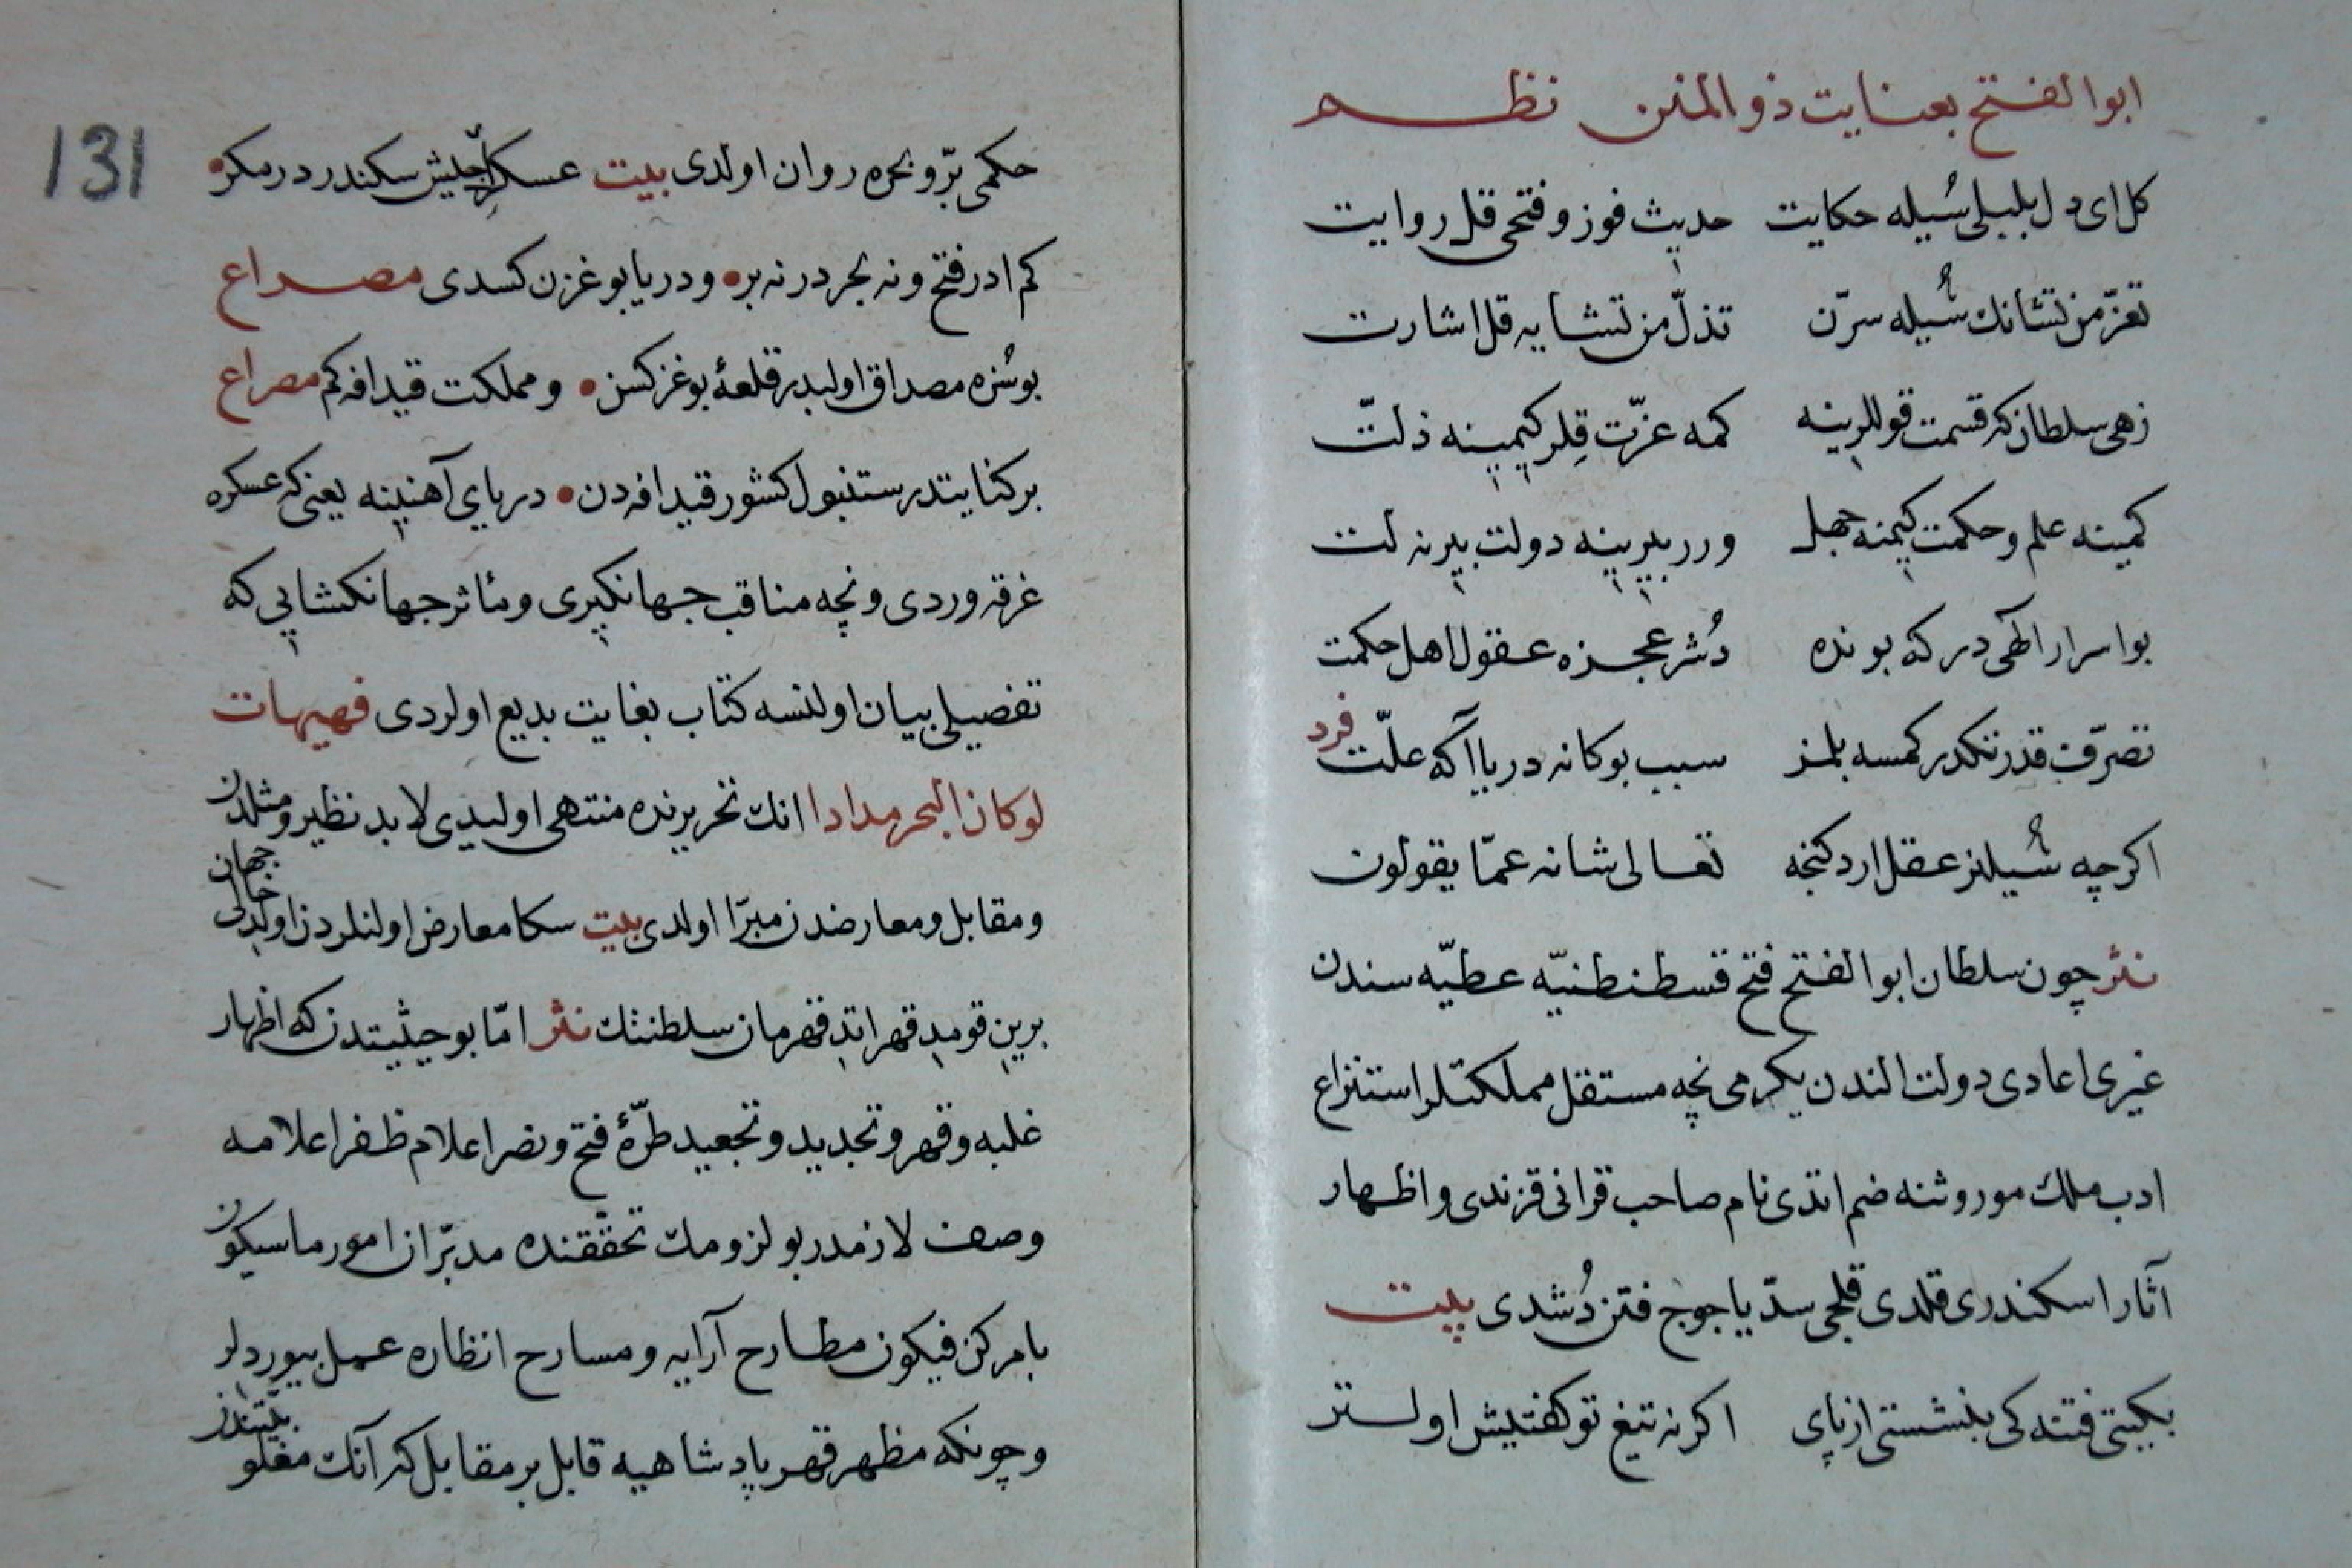 ابو الفتح بعنايت ذو المنن نظم
كل اى دل بلبلى سُيله حكايت حديث فوز و فتحى قل روايت
تعزّ من تشانك سُيله سرّن تذلّ من تشايه قل اشارت
زهى سلطان كه قسمت قوللرينه كمه عزّت قِلر كيمينه ذلّت
كمينه علم و حكمت كيمنه جهل ورر بيرينه دولت بيرنه لت
بو اسرار الهى در كه بونده دُشر عجزه عقول اهل حكمت
تصرّف قدرتنكدر كمسه بلمز سبب بو كانه دريا آكه علّت فرد
اكرچه سُيلنز عقل اردكنجه تعالى شانه عمّا يقولون
نثر چون سلطان ابو الفتح فتح قسطنطنيّه عطيّه سندن
غيرى اعادى دولت الندن يكرمى نچه مستقل مملكتلر استنزاع
ادب ملك موروثنه ضم اتدى نام صاحب قرانى قزندى و اظهار
آثار اسكندرى قلدى قلجى سدّ ياجوج فتن دُشدى بيت
بكيتى فتنه كى بنشستى از پاى اكر نه تيغ تو كفتيش اولستر
131
حكمى برّ و بحره روان اولدى بيت عسكر جيش سكندر در مكر
كم ادر فتح و نه بحر در نه بر و دريا بوغزن كسدى مصراع
بو سُزه مصداق اولبدر قلعۀ بوغز كسن و مملكت قيدافه كم مصراع
بر كنايتدر ستنبول كشور قيدافه دن درياى آهنينه يعنى كه عسكره
غرقه وردى و نچه مناقب جهانكيرى و مئاثر جهانكشايى كه
تفصيلى بيان اولنسه كتاب بغايت بديع اولردى فهيهات
لو كان البحر مدادا انك تحريرنده منتهى اوليدى لا بد نظير و مثلدن
و مقابل و معارضدن مبرّا اولدى بيت سكا معارض اولنلردن اولدى خالى جهان
برين قومد قهر اتد قهرمان سلطنتك نثر امّا بو حيثيتدن كه اظهار
غلبه و قهر و تجديد و تجعيد طرّۀ فتح و نصر اعلام ظفر اعلامه
وصف لازمدر بو لزومك تحققنده مدبّران امور ما سيكون
بامر كن فيكون مطارح آرايه و مسارح انظاره عمل بيوردلر
و چونكه مظهر قهر پادشاهيه قابل بر مقابل كه آنك مغلو بيتندن